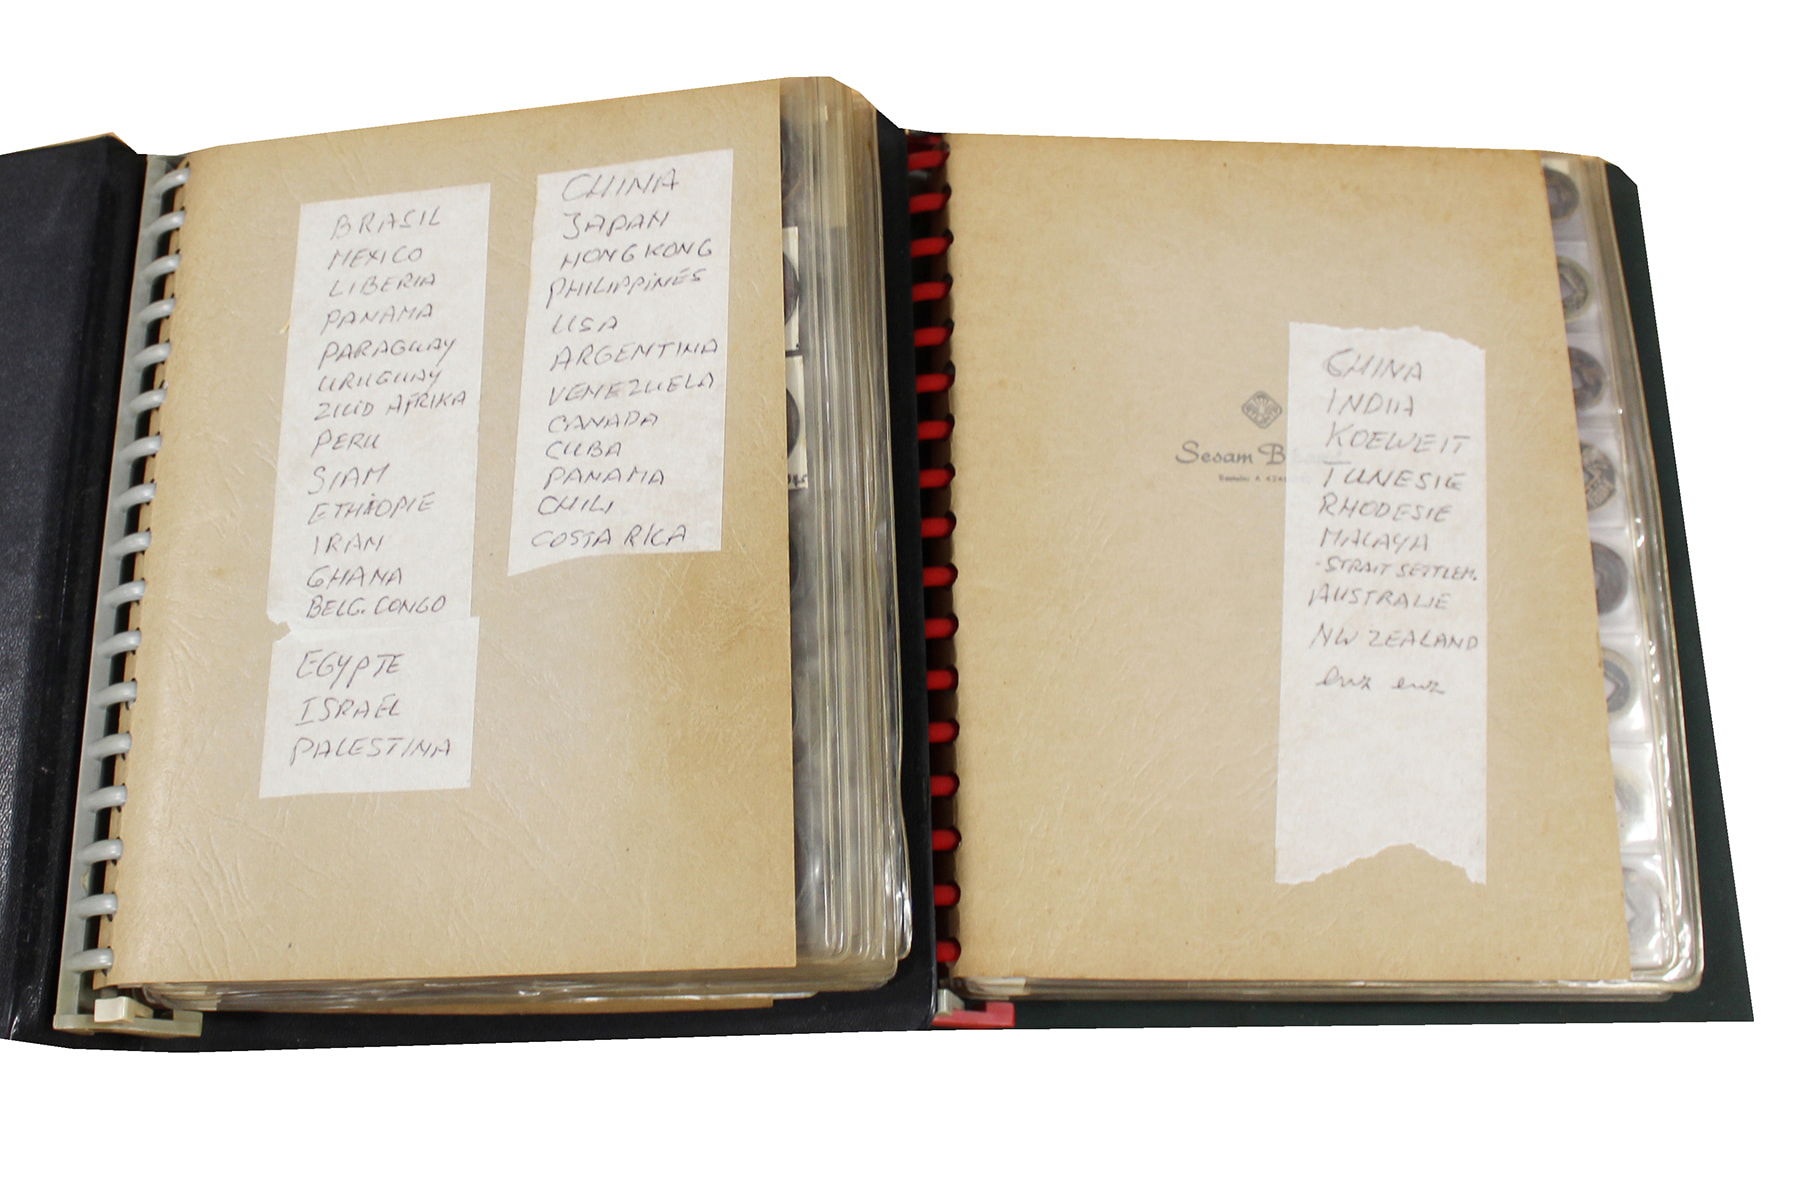 BRASIL
MEXICO
LIBERIA
PANAMA
PARAGUAY
URUGUAY
ZUID AFRIKA
PERU
SIAM
ETHIOPIE
IRAN
GHANA
BELG. CONGO
EGYPTE
ISRAEL
PALESTINA
CHINA
JAPAN
HONGKONG
PHILIPPINES
USA
ARGENTINA
VENEZUELA
CANADA
CUBA
PANAMA
CHILI
COSTA RICA
Sesam B
CHINA
INDIA
KOEWEIT
TUNESIE
RHODESIE
MALAYA
-STRAIT SETTLEM.
AUSTRALIE
NW ZEALAND
enz enz